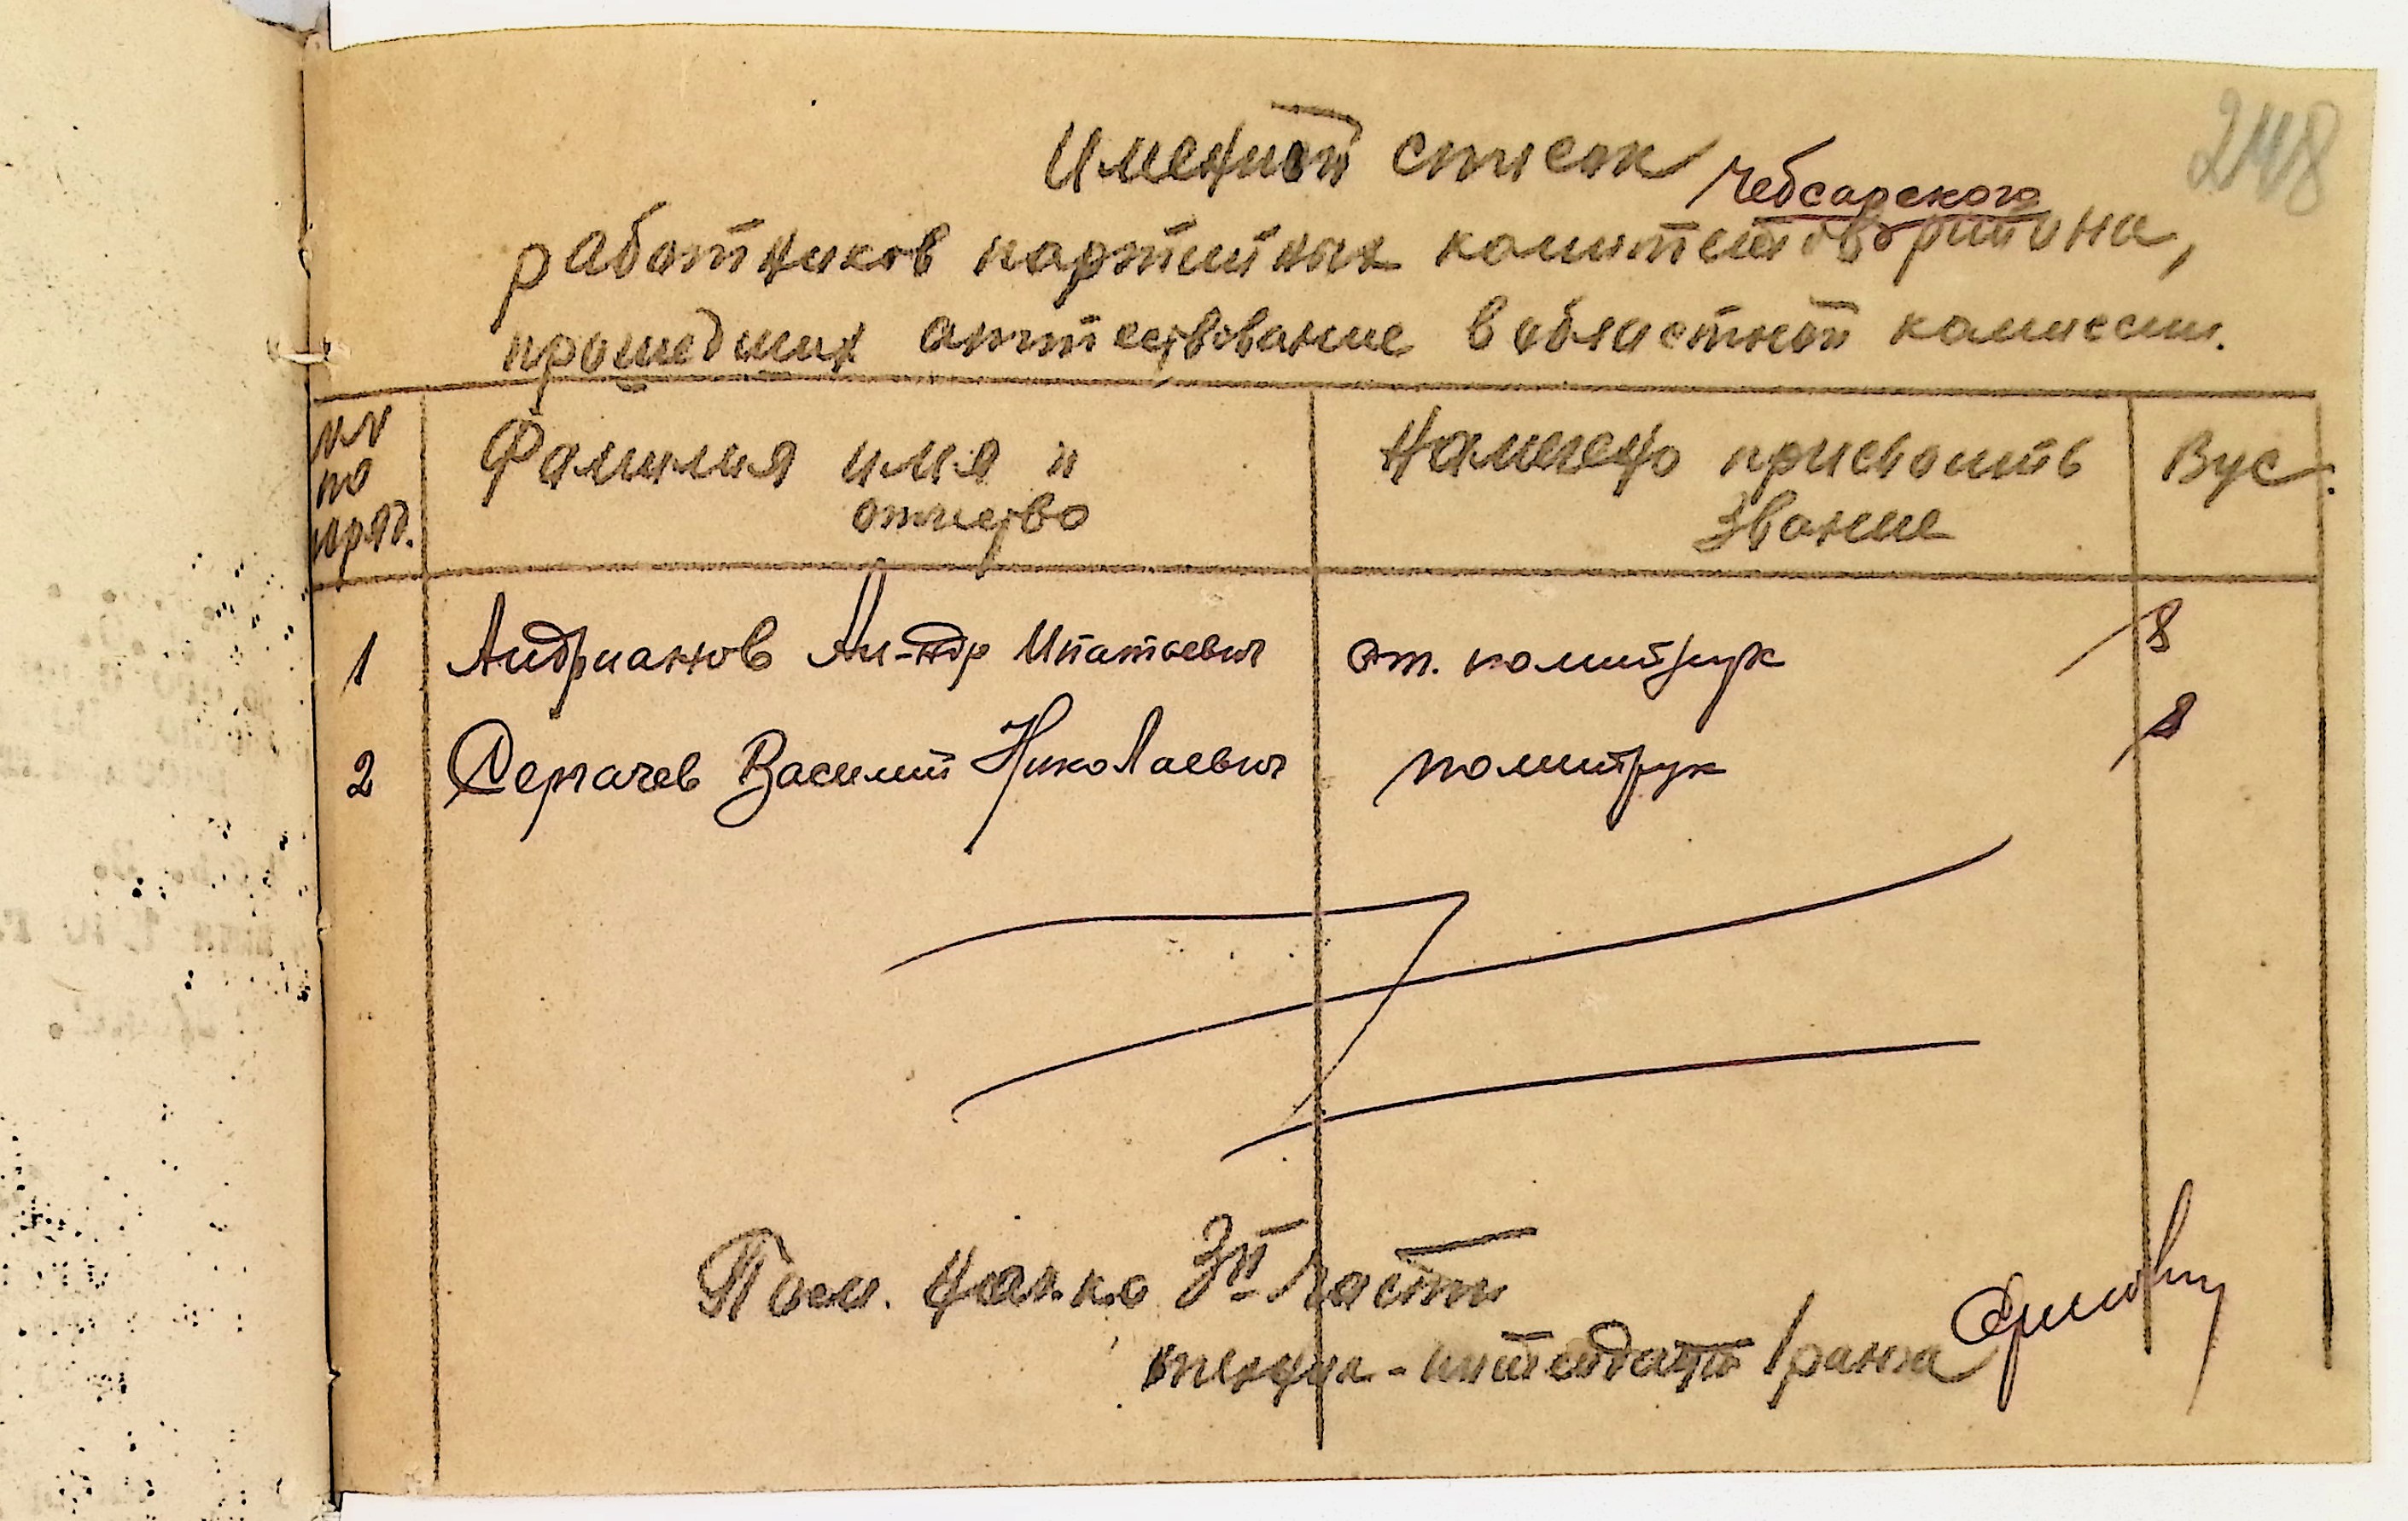 248
Именной список
Чебсарского
работников партийных комитетов района,
прошедших аттестование в областной комиссии.
NN по поряд.
Фамилия имя и отчество
Намечено присвоить звание
Вус.
1 Андрианов Ал-ндр Ипатьевич ст. политрук 8
2 Сергачев Василий Николаевич политрук 8
Пом. нач-ка 3й части
техник-интендант 1 ранга